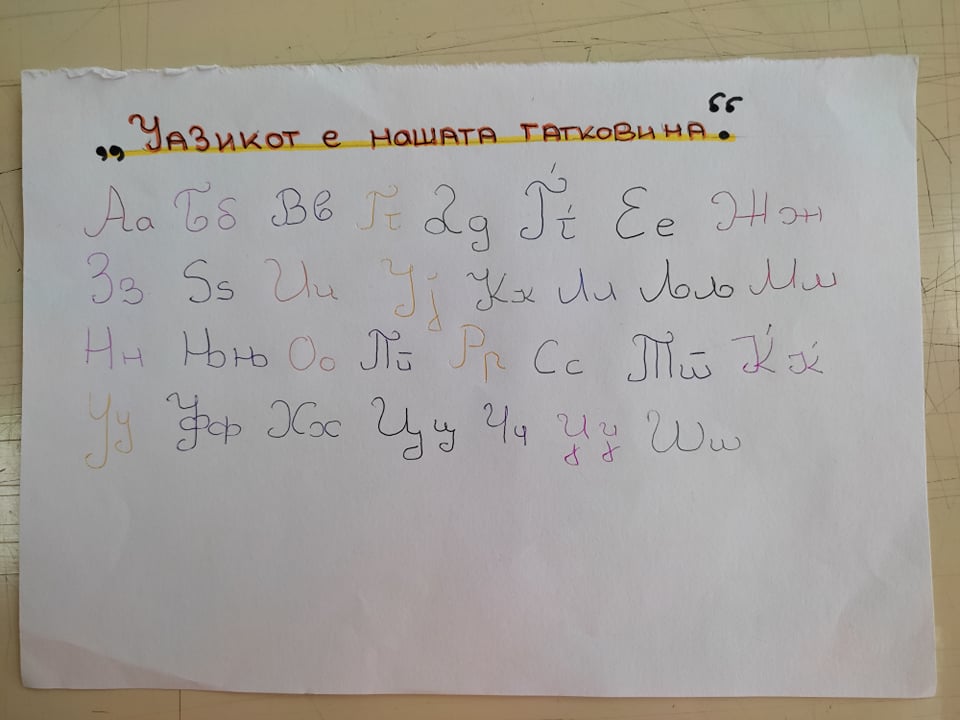 „Јазикот е нашата татковина.“
Аа Бб Вв Гг Дд Ѓѓ Ее Жж
Зз Ѕѕ Ии Јј Кк Лл Љљ Мм
Нн Њњ Оо Пп Рр Сс Тт Ќќ
Уу Фф Хх Цц Чч Џџ Шш